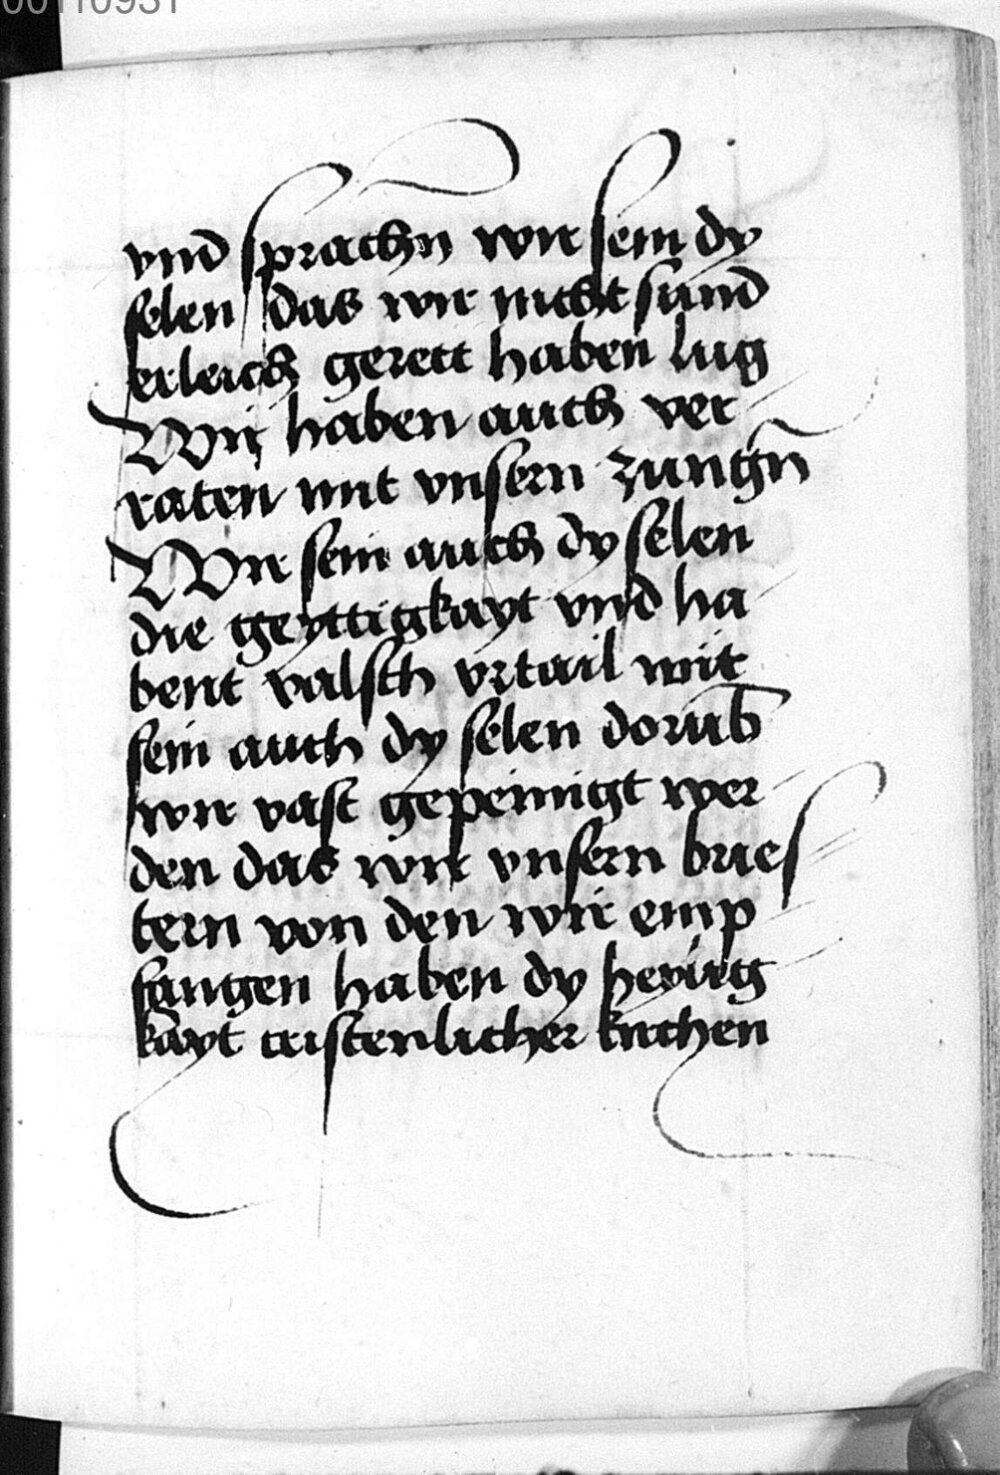 00110931
vnd sprachn wir sein dy
selen das wir nicht sund
erleich gerett haben lug
Wir haben auch ver
raten mit vnsern zungn̄
Wir sein auch dy selen
die geyttigkayt vnd ha
bent valsch vrtail wir
sein auch dy selen dorub̄
wir vast gepeinigt wer
den das wir vnsern bries
tern von den wir emp
fangen haben dy heyirg
kayt cristenlicher kirchen